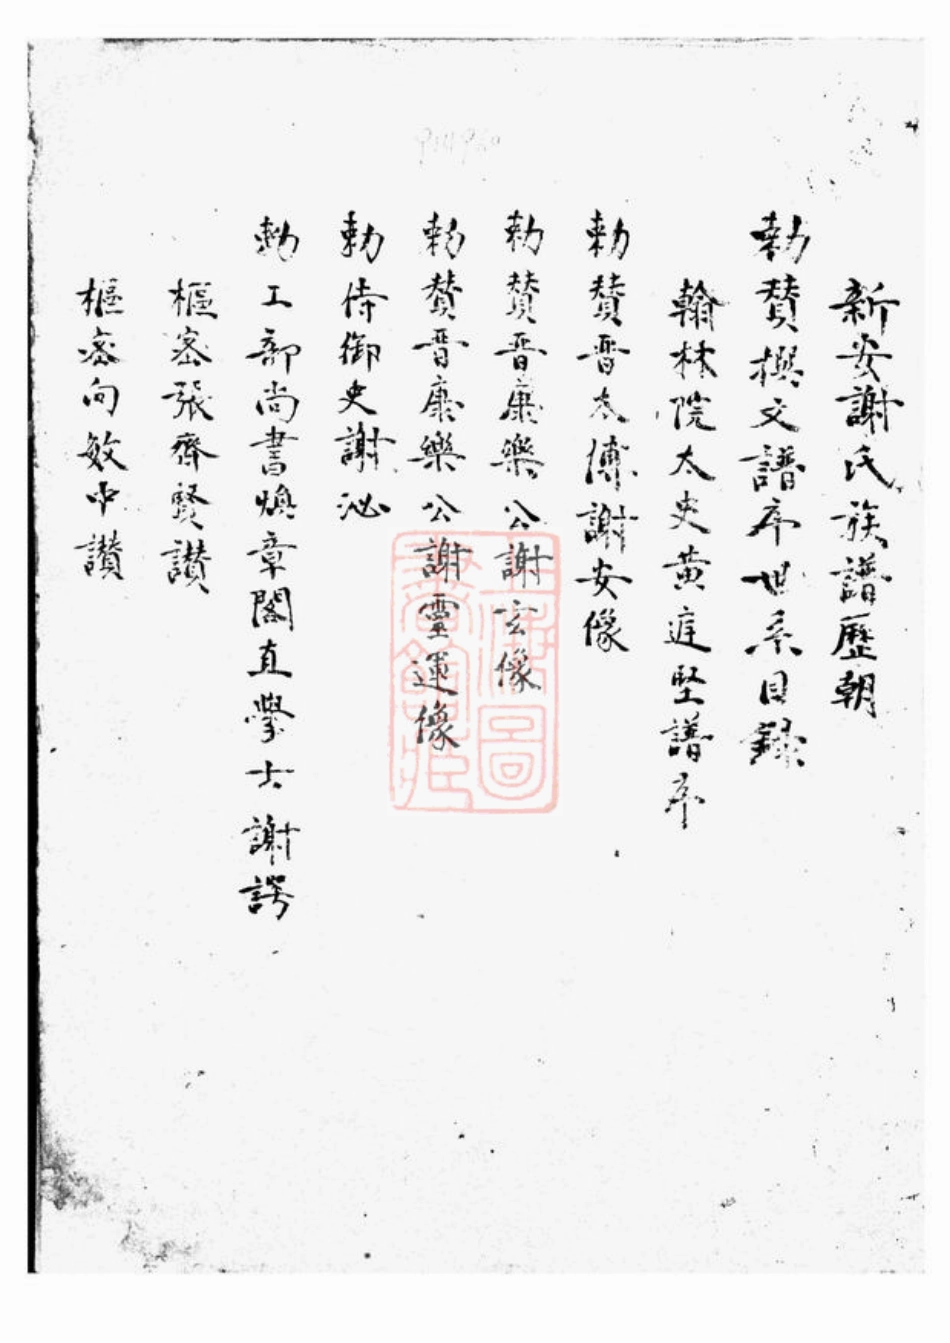 新安謝氏族譜歷朝
勅賛撰文譜序世系目録
翰林院太史黃庭堅譜序
勅賛晋太傅謝安像
勅賛晋康樂公謝玄像
勅賛晋康樂公謝靈運像
勅侍御史謝泌
勅工部尚書煥章閣直學士謝諤
樞密張齊賢讃
樞密向敏中讃
上海圖書館藏